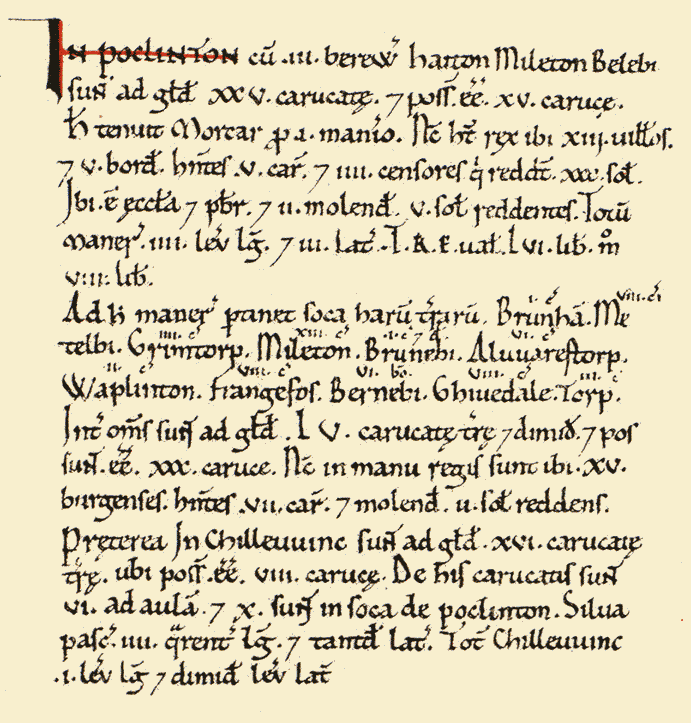 IN poclinton cū .iii. berew̃ hatton Mileton Belebi
suñ ad gld̃ XXV. carucatę. ⁊ poss̃ .ēē. xv. carucę.
H̃ tenuit Morcar p̱ .1. manio. Nc̃ hт̃ rex ibi xiij. uilƚos.
⁊ v. bord̃. hñtes .v. car̃. ⁊ iiii. censores q̇ reddт̃. xxx. soƚ.
Ibi .ē ęccƚa ⁊ pƀr. ⁊ ii. molend̃. v. soƚ reddentes. Totū
maner̃ .iiii. leṽ lg̃. ⁊ iii. laт̃. T.R.E. uaƚ. LVI. liƀ. m̊
viii. liƀ.
Ad h̃ maner̃ p̱tinet soca harū tr̃arū. Brūnhā. Me
telbi. Grimtorp. Mileton. Brunebi. Aluuarestorp.
Waplinton. Frangefos. Bernebi. Ghiuedale. Torp.
Inт̃ om̃s suñ ad gld̃. LV. carucatę tr̃ę ⁊ dimid̃. ⁊ pos
suñ .ēē. xxx. caruce. Nc̃ in manu regis sunt ibi .xv.
burgenses. hñtes .vii. car̃. ⁊ molend̃. u. soƚ reddens.
Pręterea In Chilleuuinc suñ ad gld̃ .xvi. carucatę
tr̃ę. ubi poss̃ .ēē. viii. carucę. De his carucatis suñ
vi. ad aulā. ⁊ x. suñ in soca de poclinton. Silua
pasc̃. iiii. q̃renт̃ lg̃. ⁊ tantd̃ laт̃. Toт̃ Chilleuuinc
.i. leṽ lg̃ ⁊ dimid̃ leṽ laт̃